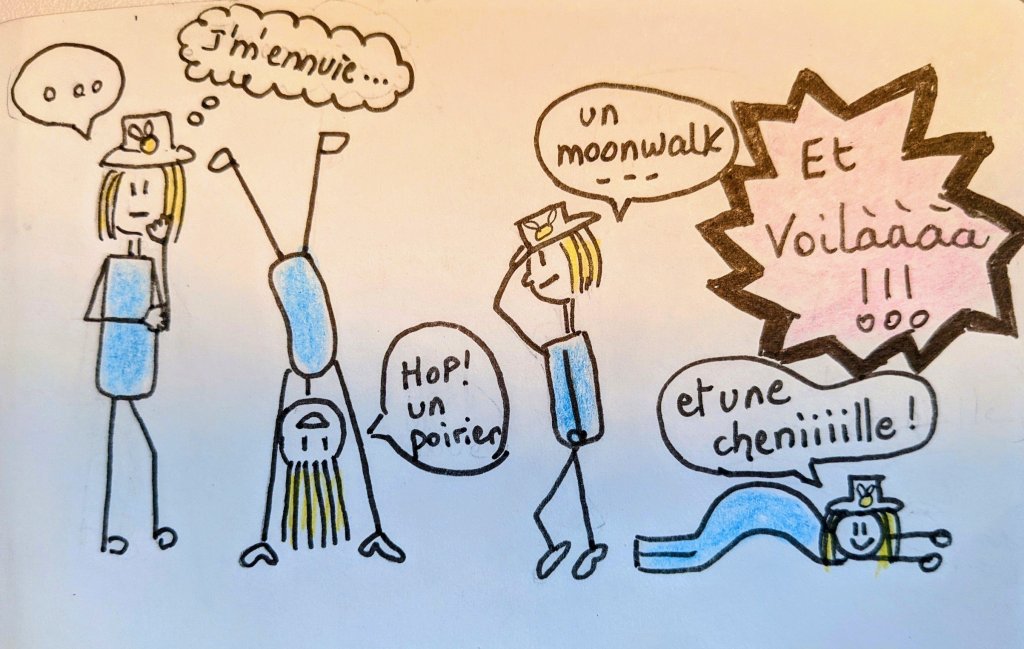 ...
J'm'ennuie...
HOP!
un
poirier
un
moonwalk
---
Et
Voilàààà
!!!
et une
cheniiiiille !